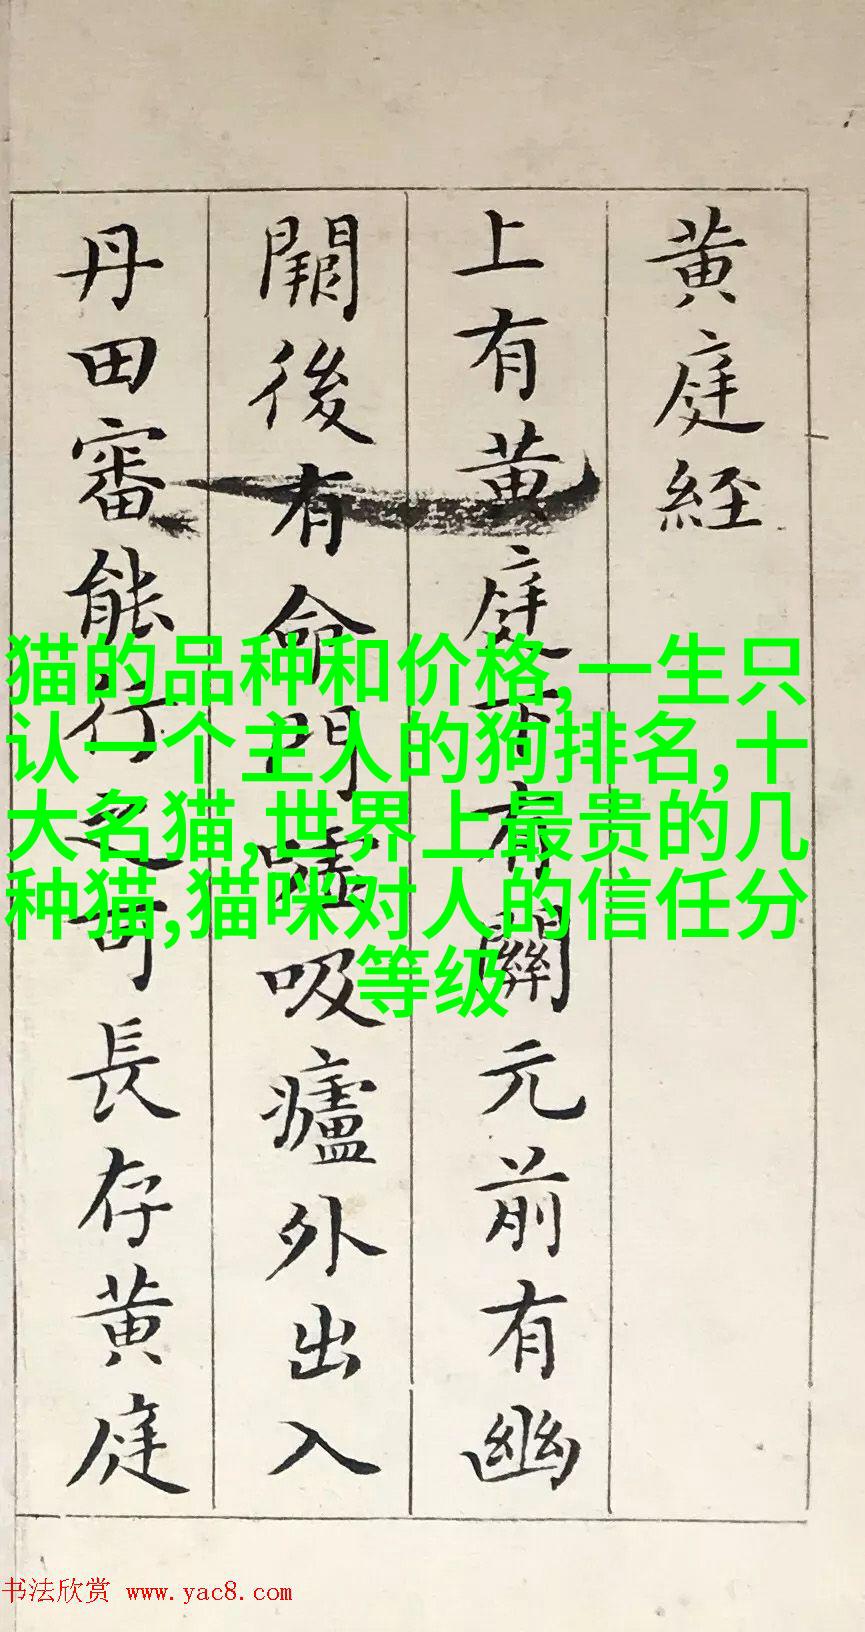 黄庭経
上有黄庭下有關元前有幽
闕後有命門噓吸廬外出入
丹田審能行之可長存黄庭
猫的品种和价格,一生只
认一个主人的狗排名,十
大名猫,世界上最贵的几
种猫,猫咪对人的信任分
等级
书法欣赏 www.yac8.com